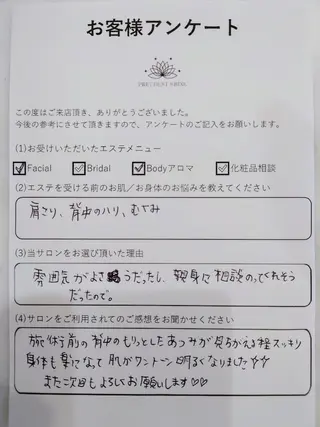 お客様アンケート
この度はご来店頂き、ありがとうございました。
今後の参考にさせて頂きますので、アンケートのご記入をお願いします。
(1)お受けいただいたエステメニュー
☑Facial ☑Bridal ☑Bodyアロマ ☑化粧品相談
(2)エステを受ける前のお肌／お身体のお悩みを教えてください
肩こり、背中のハリ、むくみ
(3)当サロンをお選び頂いた理由
雰囲気がよさそうだったし、親身に相談のってくれそう
だったので。
(4)サロンをご利用されてのご感想をお聞かせください
施術前の背中のもりっとしたあつみが見ちがえる程スッキリ
身体も楽になって肌がワントーン明るくなりました☆☆
また次回もよろしくお願いします♡♡